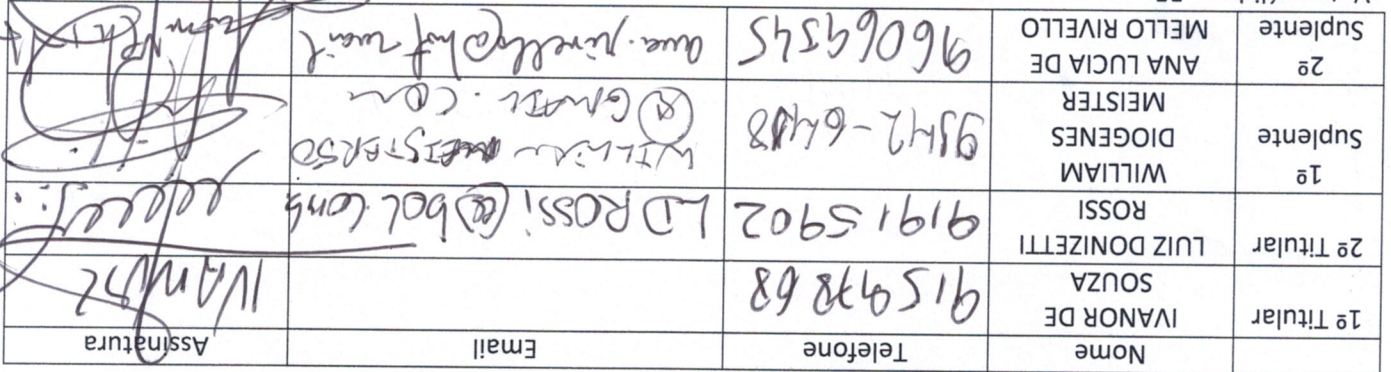 Nome Telefone Email Assinatura
1º Titular IVANOR DE SOUZA 91597868 IVANOR
2º Titular LUIZ DONIZETTI ROSSI 91915902 LDROSSI@bol.com
1º Suplente WILLIAM DIOGENES MEISTER 9542-6488 WILLIAN MEISTER50
@GMAIL.COM
2º Suplente ANA LUCIA DE MELLO RIVELLO 96069545 ana.rivello@hotmail